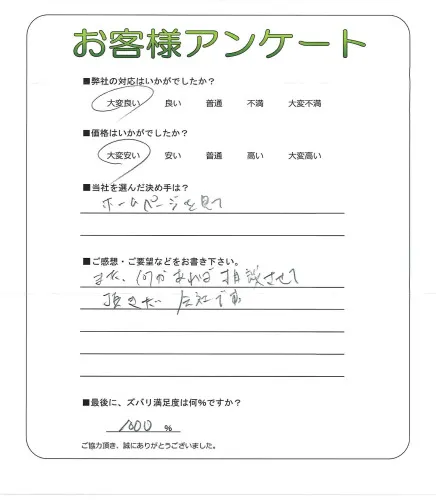 お客様アンケート
■弊社の対応はいかがでしたか？
大変良い 良い 普通 不満 大変不満
■価格はいかがでしたか？
大変安い 安い 普通 高い 大変高い
■当社を選んだ決め手は？
ホームページを見て
■ご感想・ご要望などをお書き下さい。
また、何かあれば相談させて
頂きたい会社です
■最後に、ズバリ満足度は何％ですか？
1000 %
ご協力頂き、誠にありがとうございました。